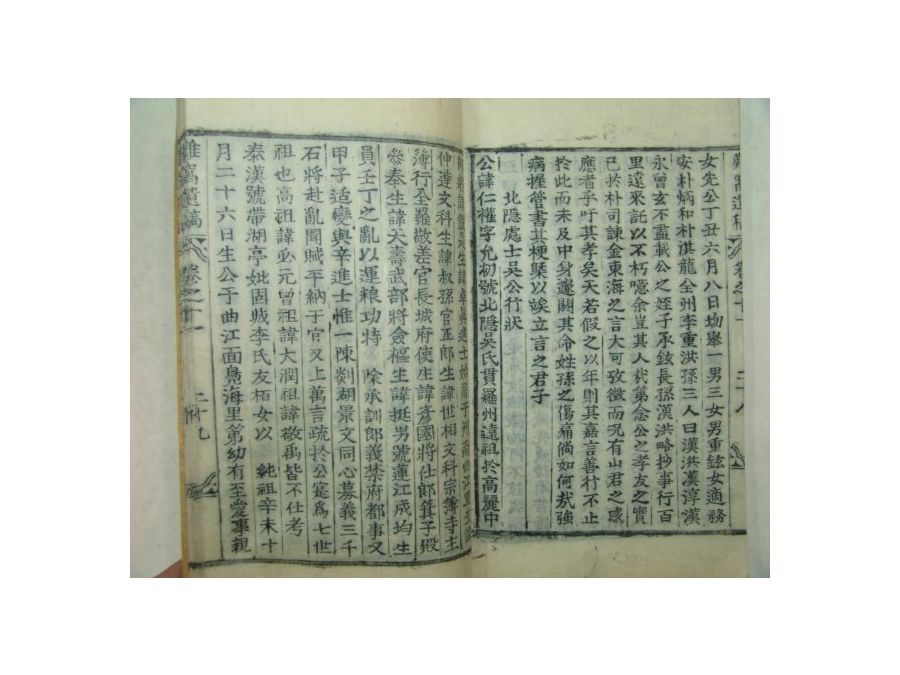 女先公丁丑六月八日歿擧一男三女男重鉉女適務
安朴炳和朴淇龍全州李重洪孫三人曰漢洪漢淳漢
永曾玄不盡載公之姪子承鉉長孫漢洪略抄事行百
里遠來託以不朽噫余豈其人哉第念公之孝友之實
已於朴司諫金東海之言大可攷徵而況有山君之感
應者乎吁其孝矣天若假之以年則其嘉言善行不止
於此而未及中身遽閼其命姓孫之傷痛倘如何哉強
病握管書其梗槩以竢立言之君子
北隱處士吳公行狀
公諱仁權字允初號北隱吳氏貫羅州遠祖於高麗中
仲達文科生諱叔孫官正郎生諱世相文科宗簿寺主
薄行全羅敬差官長城府使生諱彥國將仕郎箕子殿
參奉生諱天壽武部將僉樞生諱挺男號蓮江成均生
員壬丁之亂以運粮功特 除承訓郎義禁府都事又
甲子适變與辛進士惟一陳剡湖景文同心募義三千
石將赴亂聞賊平納于官又上萬言疏於公寔爲七世
祖也高祖諱必元曾祖諱大潤祖諱敬禹皆不仕考
泰漢號帶湖亭妣固城李氏友栢女以 純祖辛未十
月二十六日生公于曲江面鳧海里第幼有至愛事親
難窩遺稿 卷之十一 二十九